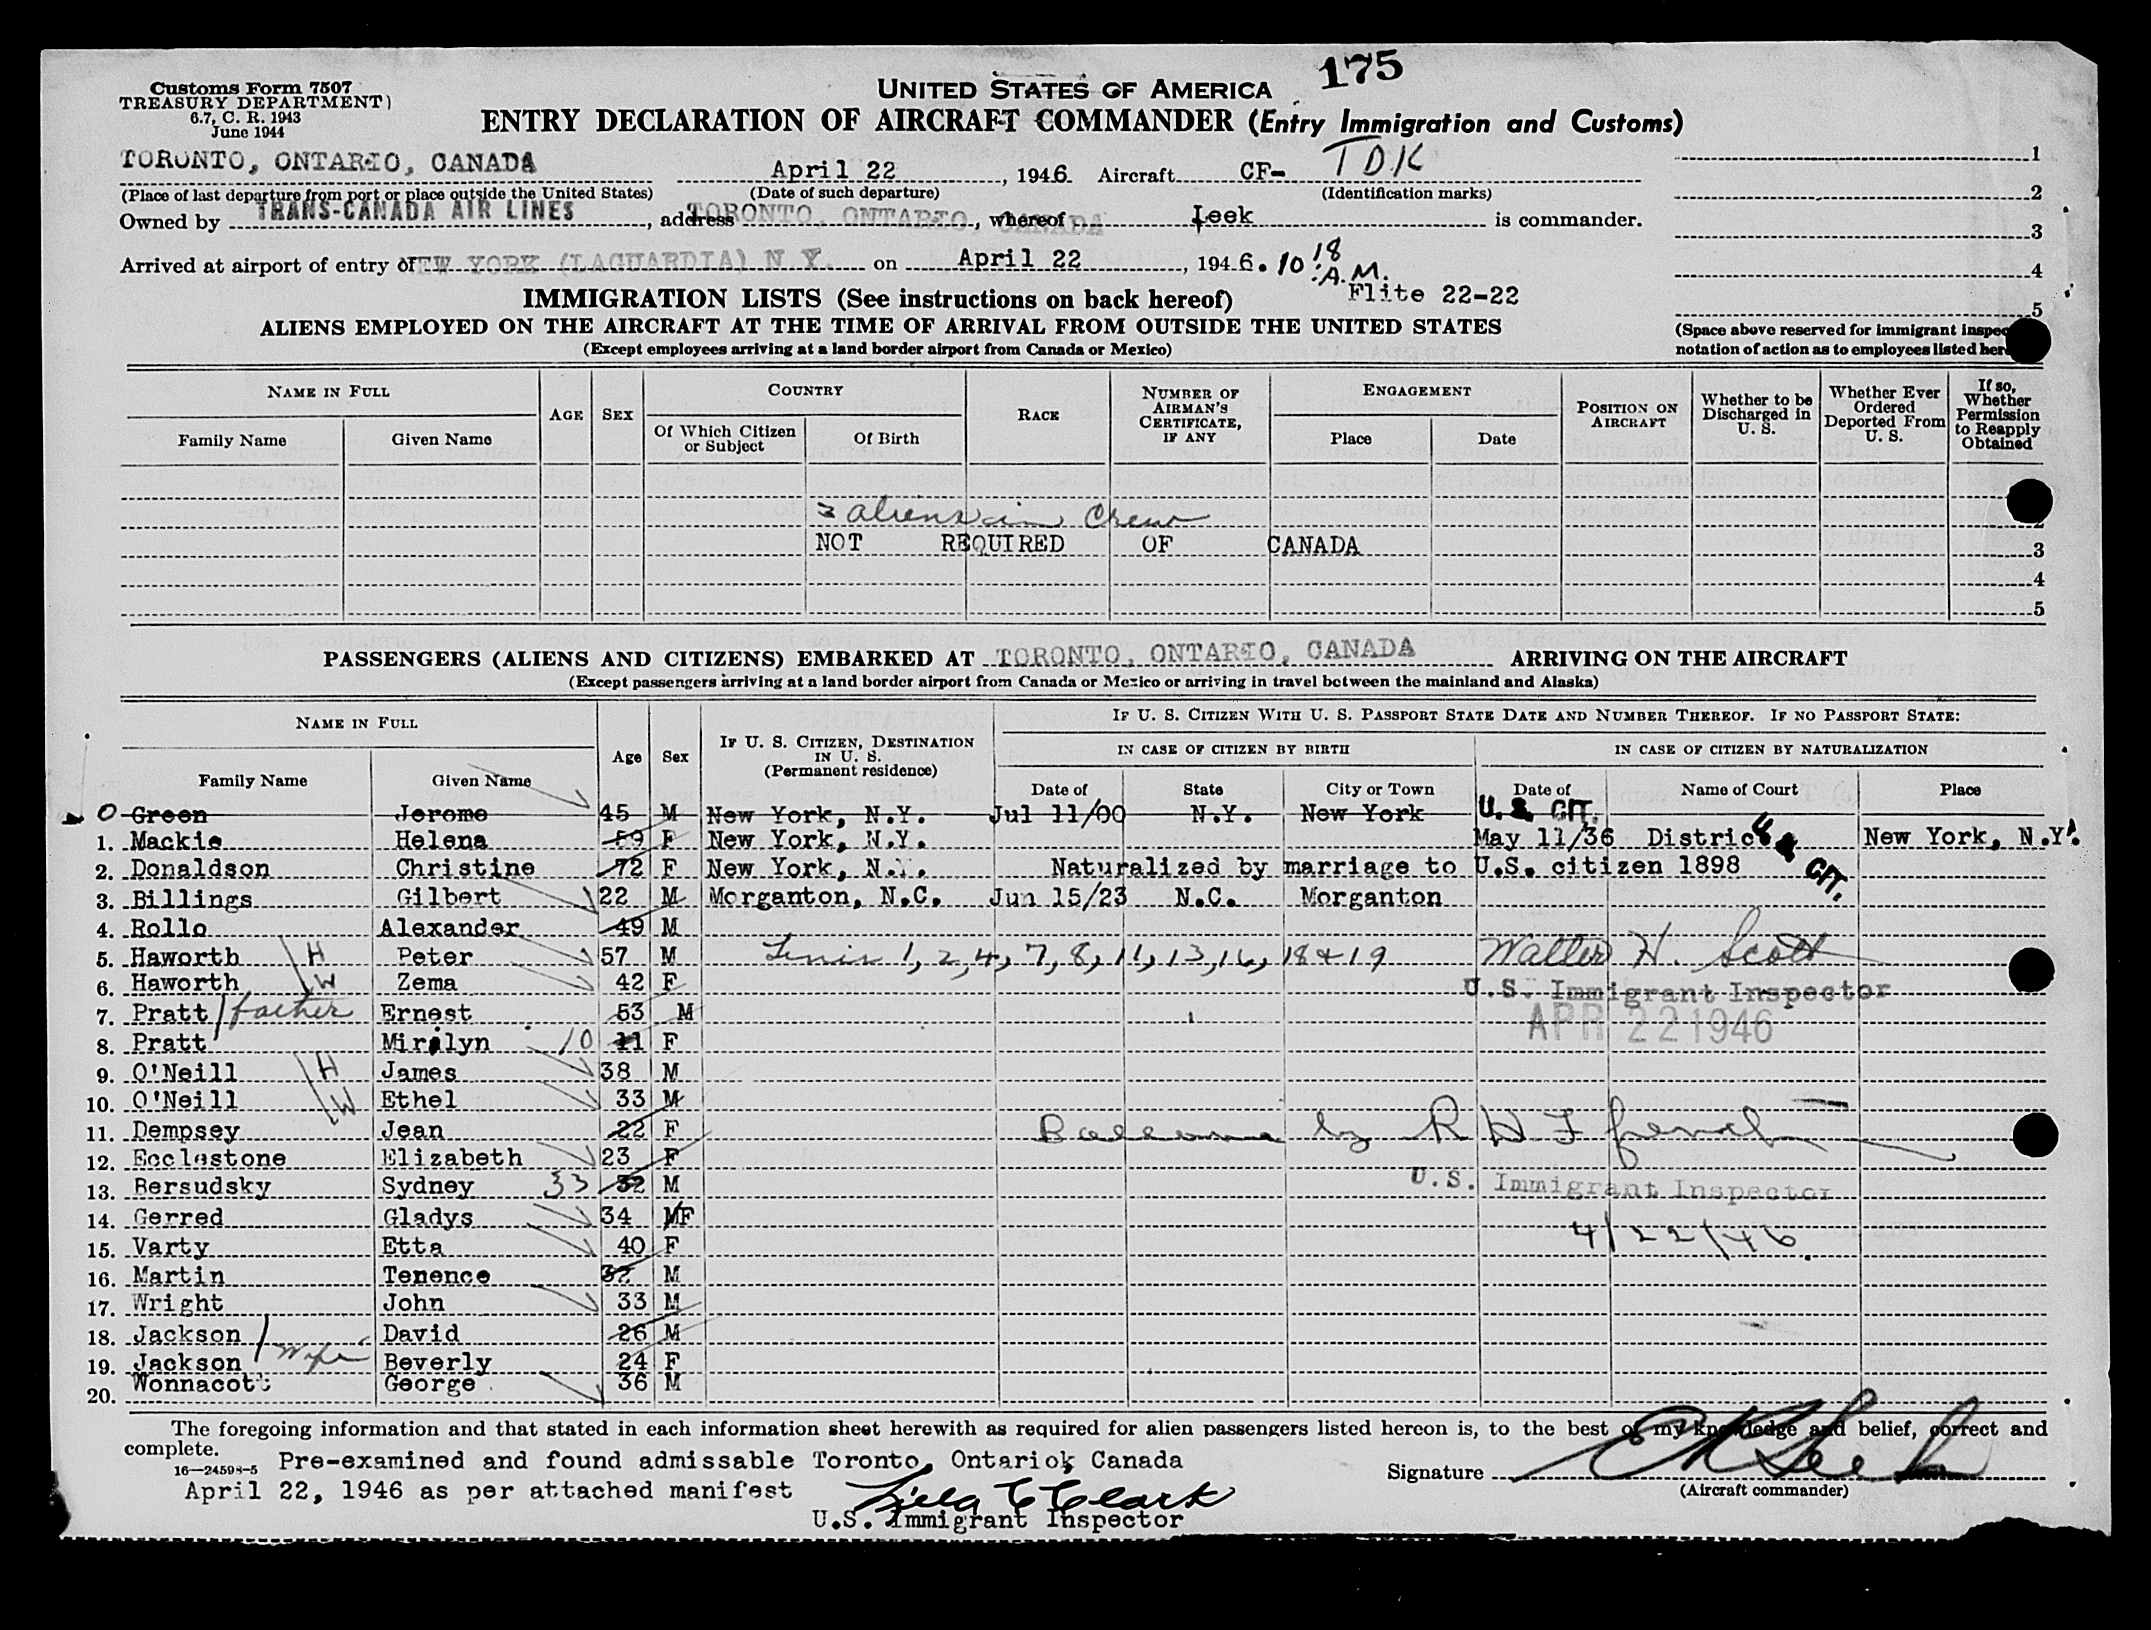 175
Customs Form 7507
TREASURY DEPARTMENT)
6.7, C. R. 1943
June 1944
UNITED STATES OF AMERICA
ENTRY DECLARATION OF AIRCRAFT COMMANDER (Entry Immigration and Customs)
TORONTO, ONTARIO, CANADA April 22, 1946 Aircraft CF- TDK 1
(Place of last departure from port or place outside the United States) (Date of such departure) (Identification marks) 2
Owned by TRANS-CANADA AIR LINES, address TORONTO, ONTARIO, CANADA, whereof Leek is commander. 3
Arrived at airport of entry of NEW YORK (LAGUARDIA) N Y. on April 22, 1946. 10 18 A.M. 4
Flite 22-22 5
IMMIGRATION LISTS (See instructions on back hereof)
ALIENS EMPLOYED ON THE AIRCRAFT AT THE TIME OF ARRIVAL FROM OUTSIDE THE UNITED STATES
(Except employees arriving at a land border airport from Canada or Mexico)
(Space above reserved for immigrant inspec
notation of action as to employees listed her
NAME IN FULL AGE SEX COUNTRY RACE NUMBER OF AIRMAN'S CERTIFICATE, IF ANY ENGAGEMENT POSITION ON AIRCRAFT Whether to be Discharged in U. S. Whether Ever Ordered Deported From U. S. If so, Whether Permission to Reapply Obtained
Family Name Given Name Of Which Citizen or Subject Of Birth Place Date
aliens in Crew 2
NOT REQUIRED OF CANADA 3
4
5
PASSENGERS (ALIENS AND CITIZENS) EMBARKED AT TORONTO, ONTARIO, CANADA ARRIVING ON THE AIRCRAFT
(Except passengers arriving at a land border airport from Canada or Mexico or arriving in travel between the mainland and Alaska)
NAME IN FULL Age Sex IF U. S. CITIZEN, DESTINATION IN U. S. (Permanent residence) IF U. S. CITIZEN WITH U. S. PASSPORT STATE DATE AND NUMBER THEREOF. IF NO PASSPORT STATE:
IN CASE OF CITIZEN BY BIRTH IN CASE OF CITIZEN BY NATURALIZATION
Family Name Given Name Date of State City or Town Date of Name of Court Place
0 Green Jerome 45 M New York, N.Y. Jul 11/00 N.Y. New York U.S. CIT.
1. Mackie Helena 59 F New York, N.Y. May 11/36 District New York, N.Y.
2. Donaldson Christine 72 F New York, N.Y. Naturalized by marriage to U.S. citizen 1898 U.S. CIT.
3. Billings Gilbert 22 M Morganton, N.C. Jun 15/23 N.C. Morganton
4. Rollo Alexander 49 M
5. Haworth H Peter 57 M 1, 2, 4, 7, 8, 11, 13, 16, 18 & 19 Walter H. Scott
6. Haworth W Zema 42 F U.S. Immigrant Inspector
7. Pratt father Ernest 53 M APR 22 1946
8. Pratt Mirilyn 10 11 F
9. O'Neill H James 38 M
10. O'Neill W Ethel 33 M
11. Dempsey Jean 22 F by R H F French
12. Ecclestone Elizabeth 23 F
13. Bersudsky Sydney 33 32 M U.S. Immigrant Inspector
14. Gerred Gladys 34 MF
15. Varty Etta 40 F 4/22/46.
16. Martin Tenence 32 M
17. Wright John 33 M
18. Jackson David 26 M
19. Jackson wife Beverly 24 F
20. Wonnacott George 36 M
The foregoing information and that stated in each information sheet herewith as required for alien passengers listed hereon is, to the best of my knowledge and belief, correct and
complete.
16—24598-5 Pre-examined and found admissable Toronto, Ontario, Canada
April 22, 1946 as per attached manifest
Signature E K Leek
(Aircraft commander)
Clark
U.S. Immigrant Inspector